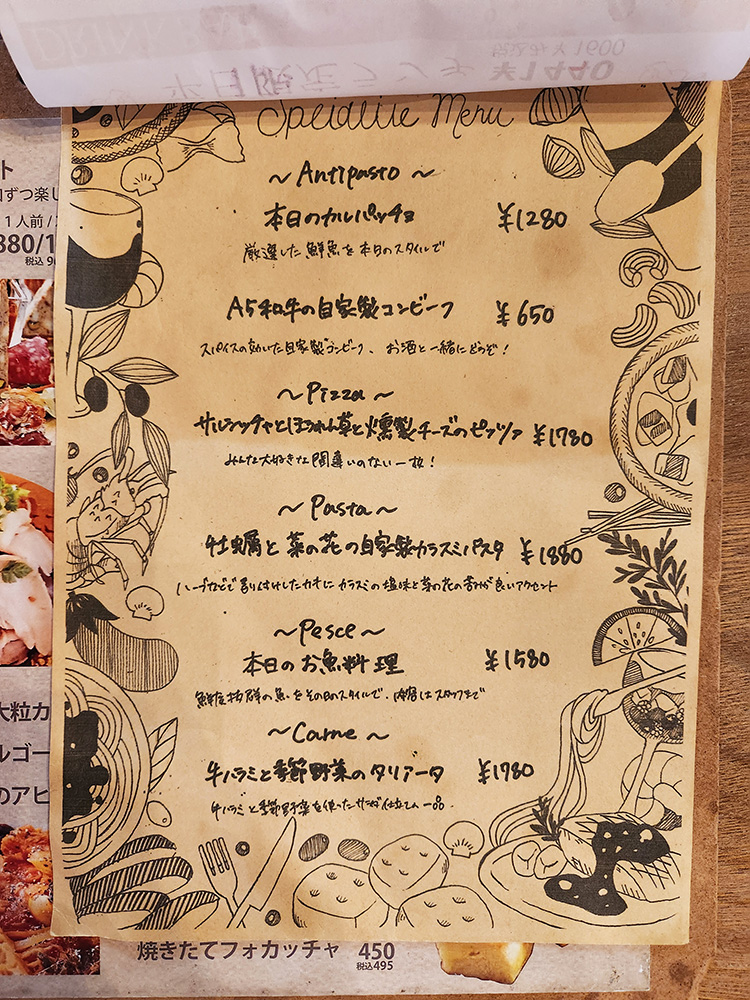 ¥1440
Specialite Menu
~Antipasto~
本日のカルパッチョ ¥1280
厳選した鮮魚を本日のスタイルで
A5和牛の自家製コンビーフ ¥650
スパイスの効いた自家製コンビーフ、お酒と一緒にどうぞ!
~Pizza~
サルシッチャとほうれん草と燻製チーズのピッツァ ¥1780
みんな大好きな間違いのない一枚!
~Pasta~
牡蠣と菜の花の自家製カラスミパスタ ¥1880
ハーブなどで香り付けしたカキにカラスミの塩味と菜の花の苦みが良いアクセント
~Pesce~
本日のお魚料理 ¥1580
鮮度抜群の魚をその日のスタイルで、内容はスタッフまで
~Carne~
牛ハラミと季節野菜のタリアータ ¥1980
牛ハラミと季節野菜を使ったサラダ仕立て一品.
ト
ずつ楽し
1人前/
880/1
税込
大粒カ
ルゴー
のアヒ
焼きたてフォカッチャ 450
税込495